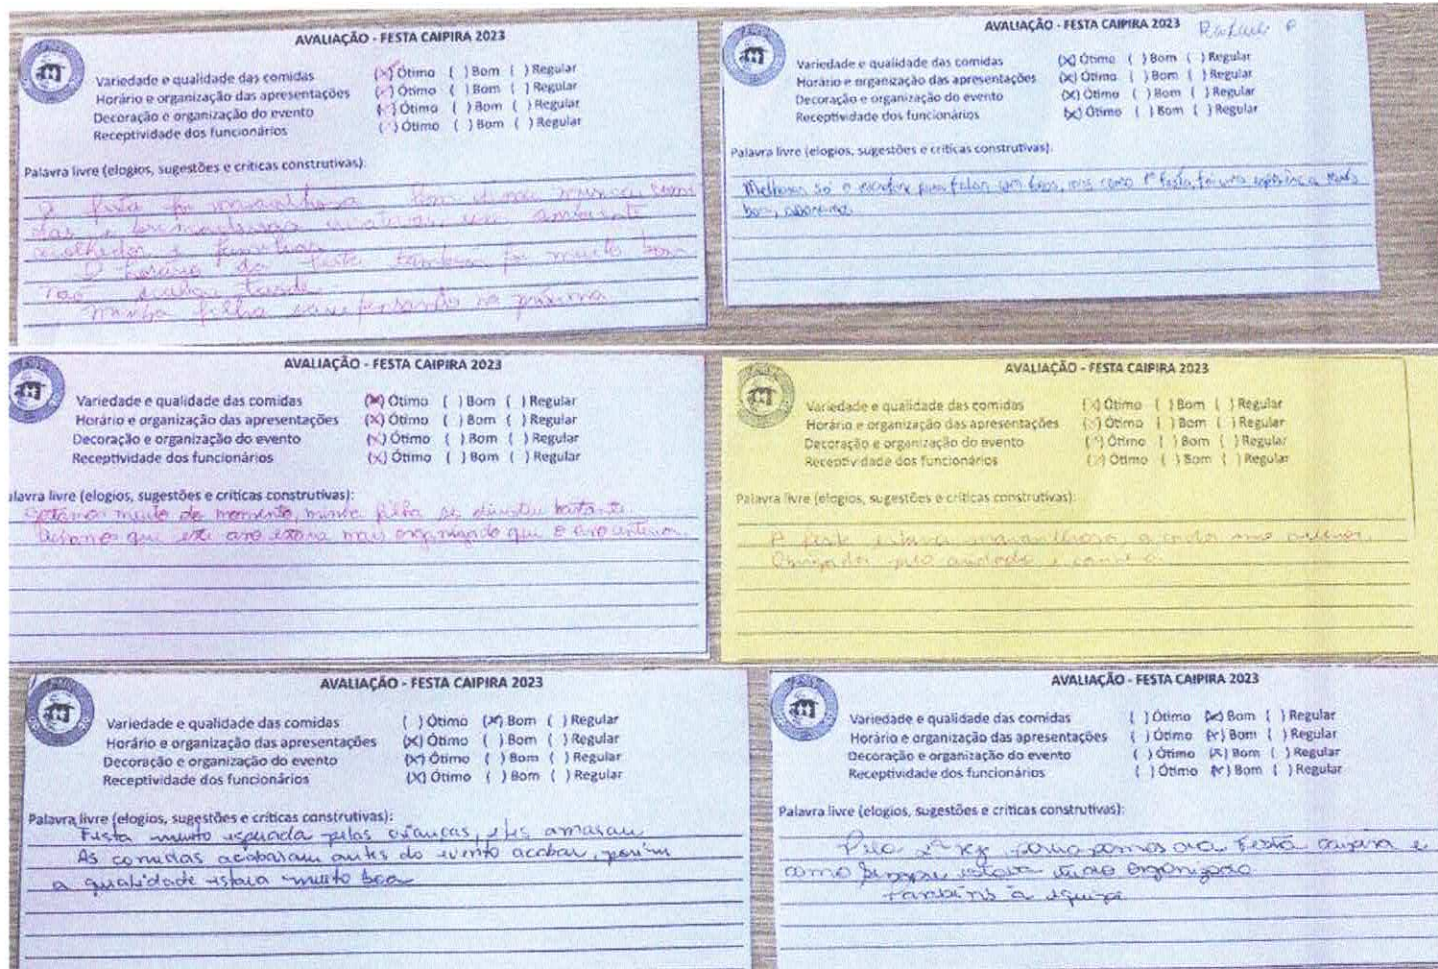 AVALIAÇÃO - FESTA CAIPIRA 2023
Variedade e qualidade das comidas (X) Ótimo ( ) Bom ( ) Regular
Horário e organização das apresentações (✓) Ótimo ( ) Bom ( ) Regular
Decoração e organização do evento (✓) Ótimo ( ) Bom ( ) Regular
Receptividade dos funcionários (✓) Ótimo ( ) Bom ( ) Regular
Palavra livre (elogios, sugestões e críticas construtivas):
A festa foi maravilhosa
das e brincadeiras um ambiente
acolhedor e familiar
O horário da festa também foi muito bom
não tarde
Minha filha saiu pensando na próxima
AVALIAÇÃO - FESTA CAIPIRA 2023
Rafael P
Variedade e qualidade das comidas (X) Ótimo ( ) Bom ( ) Regular
Horário e organização das apresentações (X) Ótimo ( ) Bom ( ) Regular
Decoração e organização do evento (X) Ótimo ( ) Bom ( ) Regular
Receptividade dos funcionários (X) Ótimo ( ) Bom ( ) Regular
Palavra livre (elogios, sugestões e críticas construtivas):
Melhorar só o para falar mas como 1ª festa, foi uma experiência muito
boa,
AVALIAÇÃO - FESTA CAIPIRA 2023
Variedade e qualidade das comidas (X) Ótimo ( ) Bom ( ) Regular
Horário e organização das apresentações (X) Ótimo ( ) Bom ( ) Regular
Decoração e organização do evento (X) Ótimo ( ) Bom ( ) Regular
Receptividade dos funcionários (X) Ótimo ( ) Bom ( ) Regular
alavra livre (elogios, sugestões e críticas construtivas):
Gostamos muito do momento, minha filha se divertiu bastante.
Achamos que este ano estava mais organizado que o ano anterior.
AVALIAÇÃO - FESTA CAIPIRA 2023
Variedade e qualidade das comidas (X) Ótimo ( ) Bom ( ) Regular
Horário e organização das apresentações (X) Ótimo ( ) Bom ( ) Regular
Decoração e organização do evento (X) Ótimo ( ) Bom ( ) Regular
Receptividade dos funcionários (X) Ótimo ( ) Bom ( ) Regular
Palavra livre (elogios, sugestões e críticas construtivas):
A festa estava maravilhosa, a cada ano melhor.
pelo cuidado e
AVALIAÇÃO - FESTA CAIPIRA 2023
Variedade e qualidade das comidas ( ) Ótimo (X) Bom ( ) Regular
Horário e organização das apresentações (X) Ótimo ( ) Bom ( ) Regular
Decoração e organização do evento (X) Ótimo ( ) Bom ( ) Regular
Receptividade dos funcionários (X) Ótimo ( ) Bom ( ) Regular
Palavra livre (elogios, sugestões e críticas construtivas):
Festa muito esperada pelas crianças, eles amaram
As comidas acabaram antes do evento acabar, porém
a qualidade estava muito boa
AVALIAÇÃO - FESTA CAIPIRA 2023
Variedade e qualidade das comidas ( ) Ótimo (X) Bom ( ) Regular
Horário e organização das apresentações ( ) Ótimo (X) Bom ( ) Regular
Decoração e organização do evento ( ) Ótimo (X) Bom ( ) Regular
Receptividade dos funcionários ( ) Ótimo (X) Bom ( ) Regular
Palavra livre (elogios, sugestões e críticas construtivas):
Pela 2ª da festa caipira e
como sempre estava organizado
Parabéns à equipe